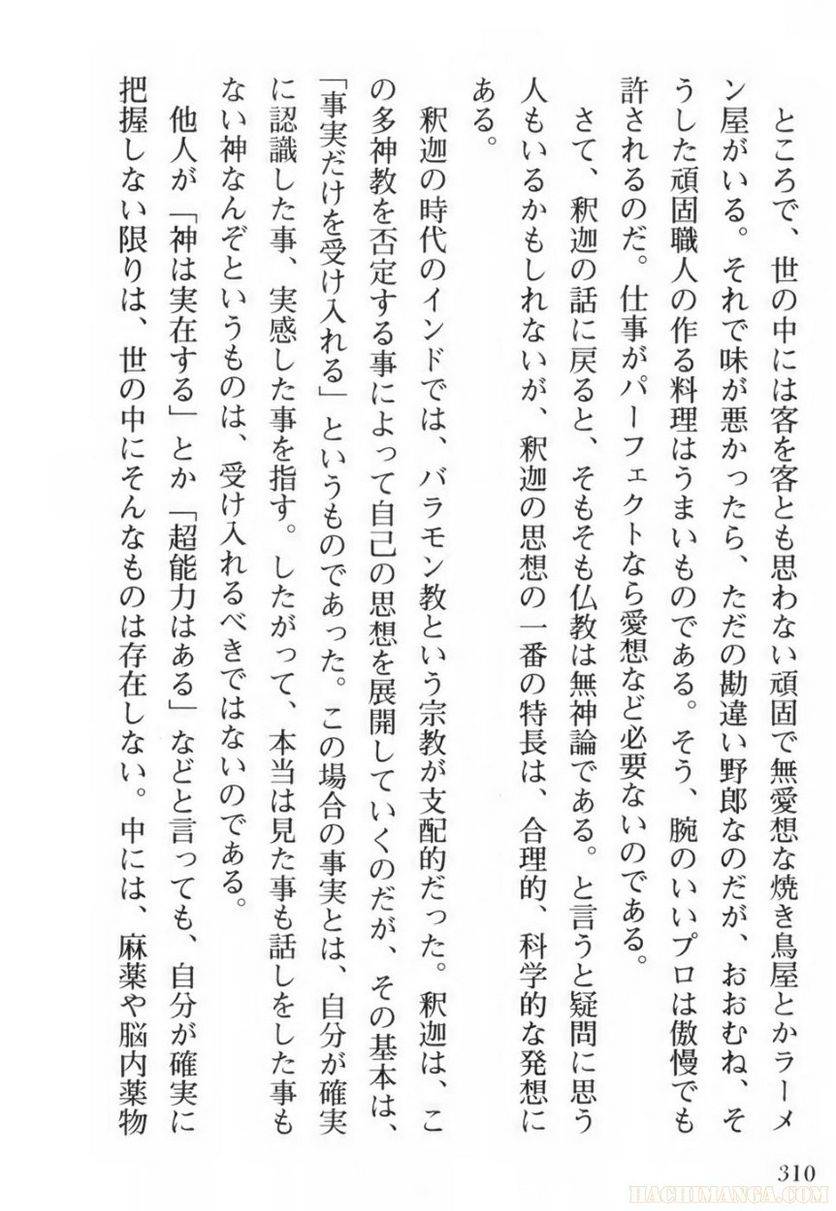 ところで、世の中には客を客とも思わない頑固で無愛想な焼き鳥屋とかラーメ
ン屋がいる。それで味が悪かったら、ただの勘違い野郎なのだが、おおむね、そ
うした頑固職人の作る料理はうまいものである。そう、腕のいいプロは傲慢でも
許されるのだ。仕事がパーフェクトなら愛想など必要ないのである。
さて、釈迦の話に戻ると、そもそも仏教は無神論である。と言うと疑問に思う
人もいるかもしれないが、釈迦の思想の一番の特長は、合理的、科学的な発想に
ある。
釈迦の時代のインドでは、バラモン教という宗教が支配的だった。釈迦は、こ
の多神教を否定する事によって自己の思想を展開していくのだが、その基本は、
「事実だけを受け入れる」というものであった。この場合の事実とは、自分が確実
に認識した事、実感した事を指す。したがって、本当は見た事も話しをした事も
ない神なんぞというものは、受け入れるべきではないのである。
他人が「神は実在する」とか「超能力はある」などと言っても、自分が確実に
把握しない限りは、世の中にそんなものは存在しない。中には、麻薬や脳内薬物
310
HACHIMANGA.COM